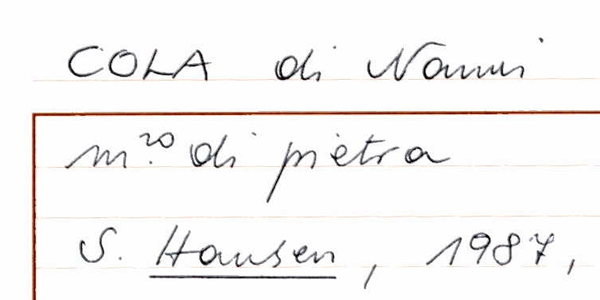 COLA di Nanni
m.ro di pietra
S. Hansen, 1987,